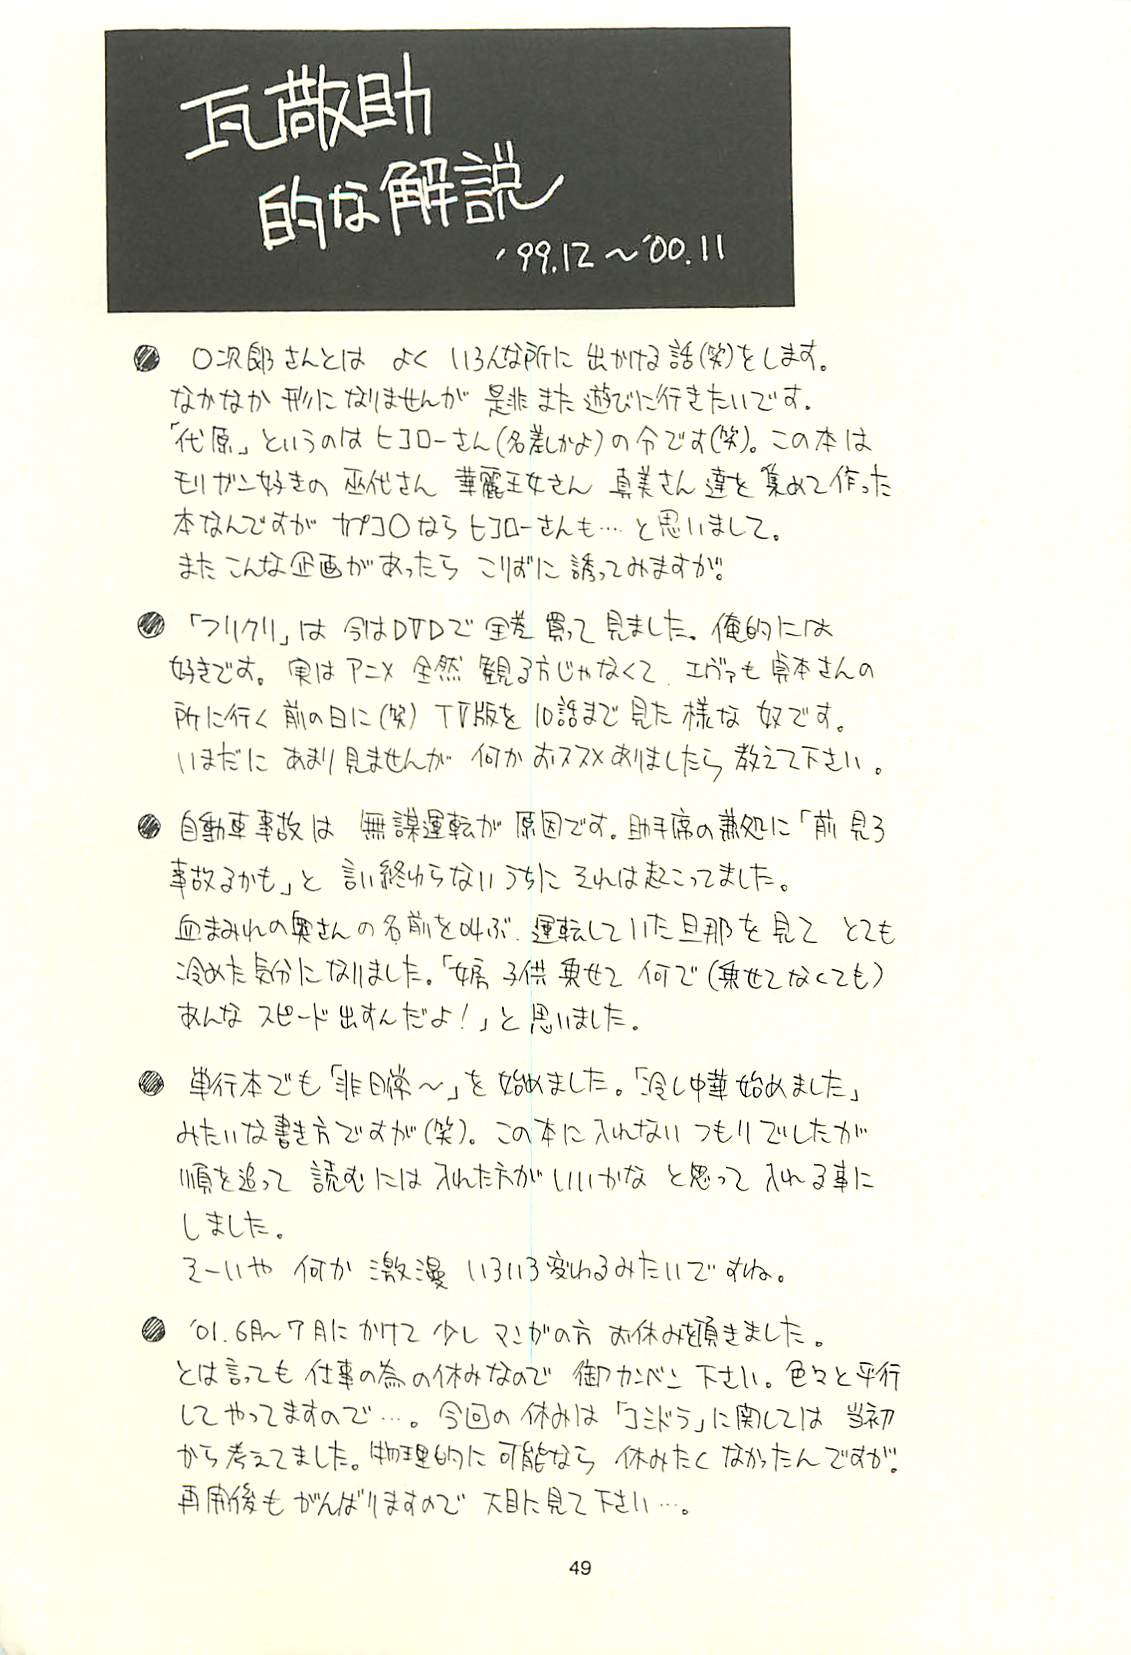 瓦敬助
的な解説
'99.12～'00.11
● 〇次郎さんとは よく いろんな所に 出かける話(笑)をします。
なかなか 形に なりませんが 是非 また 遊びに行きたいです.
「代原」というのは ヒヨローさん(名差しかよ)の 令です(笑)。この本は
モリガン好きの 巫代さん 華麗王女さん 真美さん 達を 集めて 作った
本なんですが カプコ〇なら ヒヨローさんも…と思いまして。
また こんな 企画が あったら こりずに 誘ってみますが。
● 「フリクリ」は 今はDVDで 全巻 買って 見ました。俺的には
好きです。実は アニメ 全然 観る方じゃなくて. エヴァも 貞本さんの
所に行く 前の日に(笑) TV版を 10話まで 見た 様な 奴です。
いまだに あまり 見ませんが 何か おススメ ありましたら 教えて下さい。
● 自動車事故は 無謀運転が 原因です。助手席の兼処に「前 見ろ
事故るかも」と 言い終わらない うちに それは起こってました。
血まみれの奥さんの名前を叫ぶ. 運転していた旦那を見て とても
冷めた気分になりました。「女房 子供 乗せて 何で(乗せてなくても)
あんな スピード 出すんだよ!」と 思いました。
● 単行本でも「非日常～」を 始めました。「冷し中華 始めました」
みたいな書き方ですが(笑)。この本に 入れない つもりでしたが
順を追って 読むには 入れた方が いいかな と思って 入れる事に
しました。
そーいや 何か 激漫 いろいろ変わるみたいですね。
● '01.6月～7月にかけて 少し マンガの方 お休みを頂きました。
とは言っても 仕事の為の休みなので 御カンベン 下さい。色々と平行
してやってますので…。今回の 休みは「コミドラ」に関しては 当初
から考えてました。物理的に 可能なら 休みたく なかったんですが。
再開後も がんばりますので 大目に見て下さい…。
49